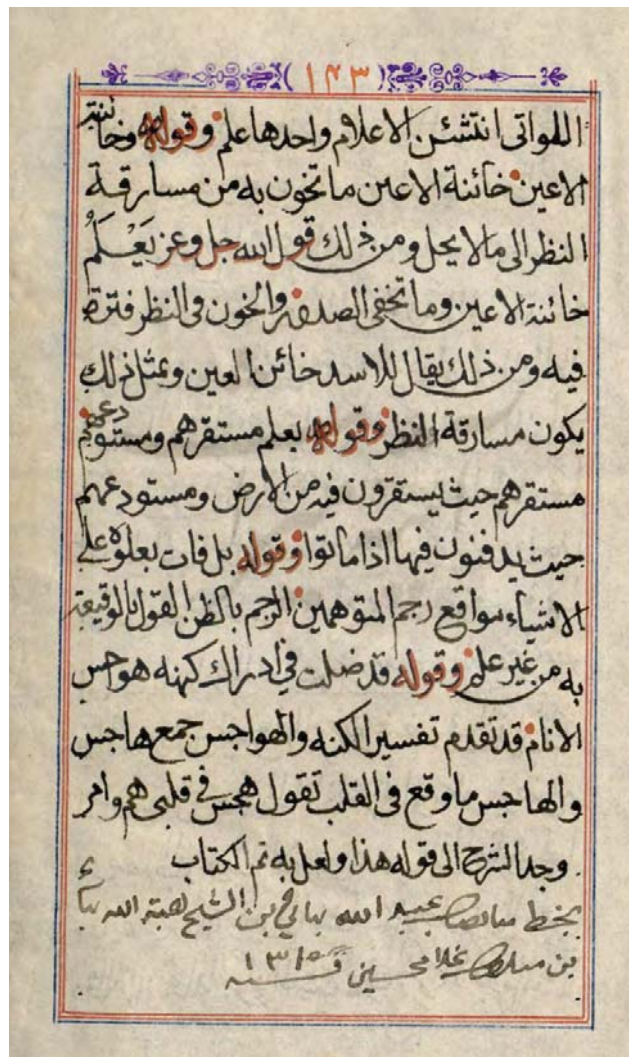 ١٤٣
اللواتى انتشئن الاعلام واحدها علم وقوله وخائنة
الاعين خائنة الاعين ما تخون به من مسارقة
النظر الى ما لا يحل ومن ذلك قول الله جل وعز يَعْلَمُ
خائنة الاعين وما تخفى الصدور والخون فى النظر فترة
فيه ومن ذلك يقال للاسد خائن العين وبمثل ذلك
يكون مسارقة النظر وقوله يعلم مستقرهم ومستودعهم
مستقرهم حيث يستقرون فيه من الارض ومستودعهم
حيث يدفنون فيها اذا ماتوا وقوله بل فات بعلوه على
الاشياء مواقع رجم المتوهمين الرجم بالظن القول بالوقيعة
به من غير علم وقوله قد ضلت في ادراك كنهه هواجس
الانام قد تقدم تفسير الكنه والهواجس جمع هاجس
والهاجس ما وقع فى القلب تقول هجس في قلبى هم وامر
وجد الشرح الى قوله هذا ولعل به تم الكتاب
بخط عبيد الله بن الشيخ هبة الله
بن غلامحسين سنه ١٣١٥